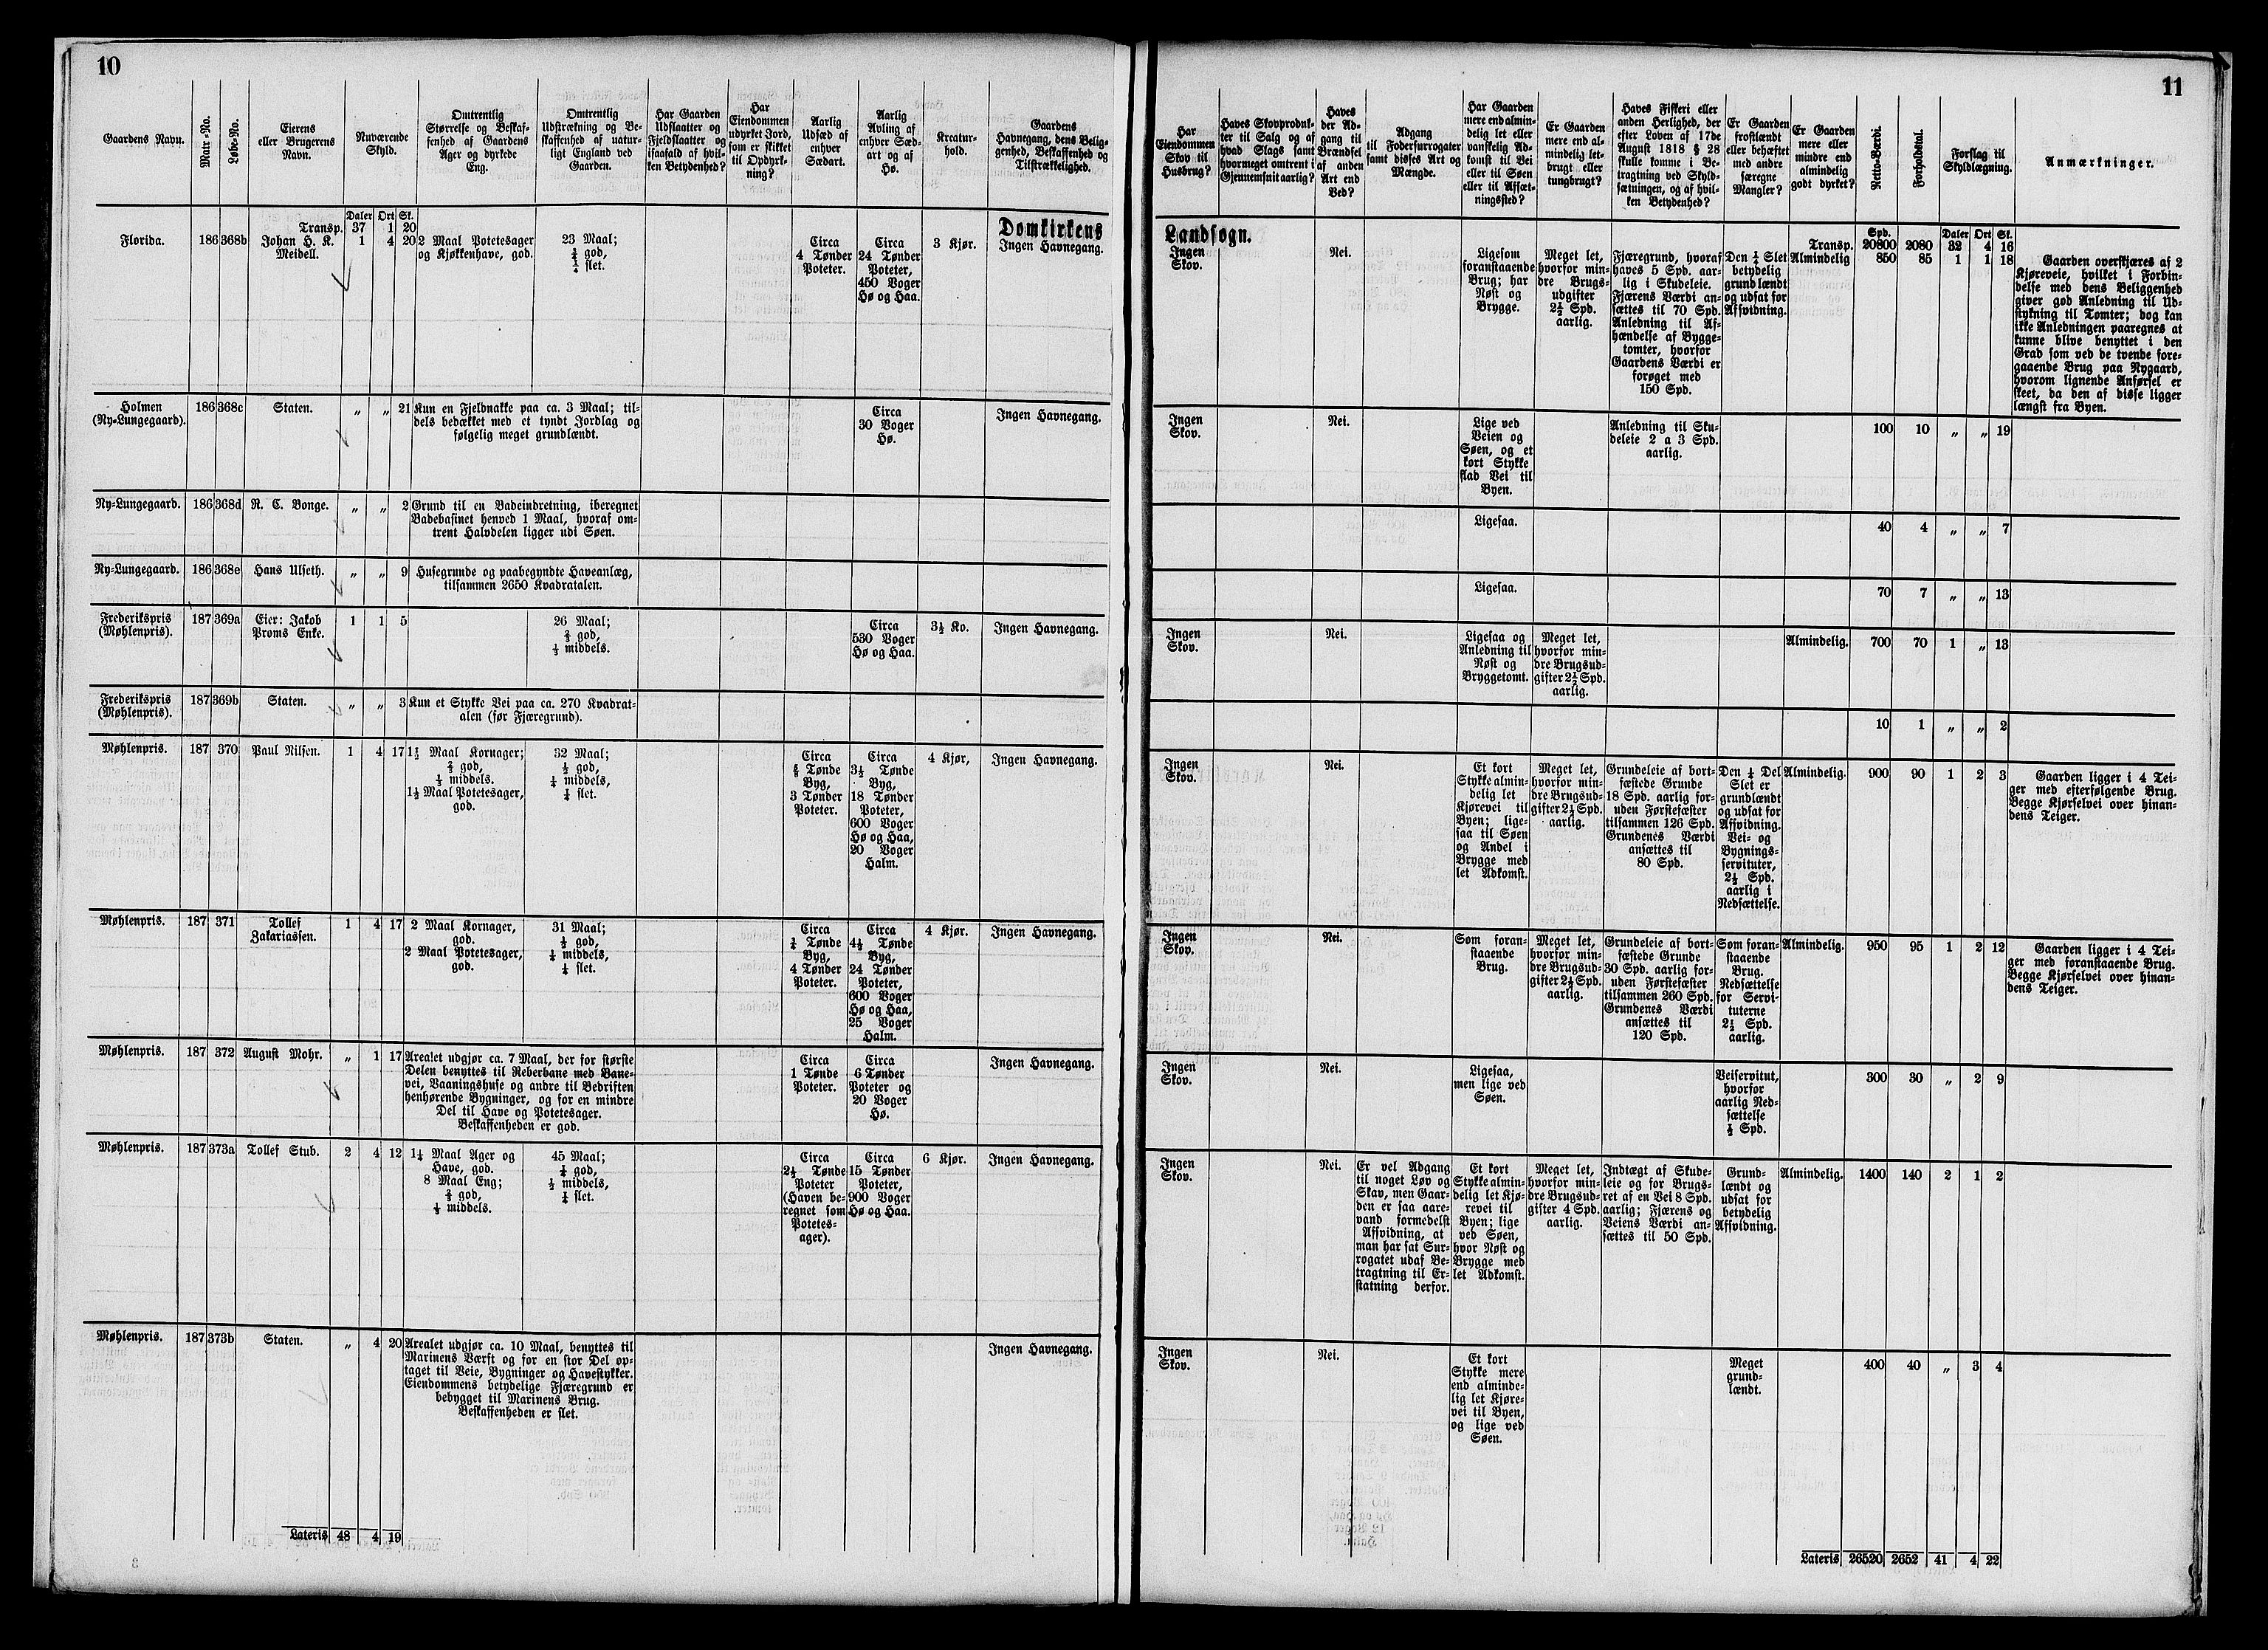 10
Gaardens Navn.
Matr-No.
Løbe-No.
Eierens
eller Brugerens
Navn.
Nuværende
Skyld.
Omtrentlig
Størrelse og Beskaf-
fenhed af Gaardens
Ager og dyrkede
Eng.
Omtrentlig
Udstrækning og Be-
skaffenhed af natur-
ligt England ved
Gaarden.
Har Gaarden
Udslaatter og
Fjeldslaatter og
isaafald af hvil-
ken Betydenhed?
Har
Eiendommen
udyrket Jord,
som er skikket
til Opdyrk-
ning?
Aarlig
Udsæd af
enhver
Sædart.
Aarlig
Avling af
enhver Sæd-
art og af
Hø.
Kreatur-
hold.
Gaardens
Havnegang, dens Belig-
genhed, Beskaffenhed og
Tilstrækkelighed.
Domkirkens
Daler Ort Sk.
Transp. 37 1 20
Florida. 186 368b Johan H. K.
Meidell.
1 4 20
2 Maal Potetesager
og Kjøkkenhave, god.
23 Maal;
¾ god,
¼ slet.
Circa
4 Tønder
Poteter.
Circa
24 Tønder
Poteter,
450 Voger
Hø og Haa.
3 Kjør.
Ingen Havnegang.
Holmen
(Ny-Lungegaard).
186 368c Staten. „ „ 21
Kun en Fjeldnakke paa ca. 3 Maal; til-
dels bedækket med et tyndt Jordlag og
følgelig meget grundlændt.
Circa
30 Voger
Hø.
Ingen Havnegang.
Ny-Lungegaard. 186 368d R. C. Bonge. „ „ 2
Grund til en Badeindretning, iberegnet
Badebasinet henved 1 Maal, hvoraf om-
trent Halvdelen ligger udi Søen.
Ny-Lungegaard. 186 368e Hans Ulseth. „ „ 9
Husegrunde og paabegyndte Haveanlæg,
tilsammen 2650 Kvadratalen.
Frederikspris
(Møhlenpris).
187 369a Eier: Jakob
Proms Enke.
1 1 5
26 Maal;
⅔ god,
⅓ middels.
Circa
530 Voger
Hø og Haa.
3½ Ko.
Ingen Havnegang.
Frederikspris
(Møhlenpris).
187 369b Staten. „ „ 3
Kun et Stykke Vei paa ca. 270 Kvadrat-
alen (før Fjæregrund).
Møhlenpris. 187 370 Paul Nilsen. 1 4 17
Maal Kornager;
⅔ god,
⅓ middels.
1½ Maal Potetesager,
god.
32 Maal;
½ god,
¼ middels,
¼ slet.
Circa
Tønde
Byg,
3 Tønder
Poteter.
Circa
3½ Tønde
Byg,
18 Tønder
Poteter,
600 Voger
Hø og Haa,
20 Voger
Halm.
4 Kjør,
Ingen Havnegang.
Møhlenpris. 187 371 Tollef
Zakariassen.
1 4 17
2 Maal Kornager,
god.
2 Maal Potetesager,
god.
31 Maal;
½ god,
¼ middels,
¼ slet.
Circa
¾ Tønde
Byg,
4 Tønder
Poteter.
Circa
4½ Tønde
Byg,
24 Tønder
Poteter,
600 Voger
Hø og Haa,
25 Voger
Halm.
4 Kjør.
Ingen Havnegang.
Møhlenpris. 187 372 August Mohr. „ 1 17
Arealet udgjør ca. 7 Maal, der for største
Delen benyttes til Reberbane med Bane-
vei, Vaaningshuse og andre til Bedriften
henhørende Bygninger, og for en mindre
Del til Have og Potetesager.
Beskaffenheden er god.
Circa
1 Tønde
Poteter.
Circa
6 Tønder
Poteter og
20 Voger
Hø.
Ingen Havnegang.
Møhlenpris. 187 373a Tollef Stub. 2 4 12
1¼ Maal Ager og
Have, god.
8 Maal Eng;
⅔ god,
⅓ middels.
45 Maal;
¼ god,
½ middels,
¼ slet.
Circa
2½ Tønde
Poteter
(Haven be-
regnet som
Potetes-
ager).
Circa
15 Tønder
Poteter,
900 Voger
Hø og Haa.
6 Kjør.
Ingen Havnegang.
Møhlenpris. 187 373b Staten. „ 4 20
Arealet udgjør ca. 10 Maal, benyttes til
Marinens Værft og for en stor Del op-
taget til Veie, Bygninger og Havestykker.
Eiendommens betydelige Fjæregrund er
bebygget til Marinens Brug.
Beskaffenheden er slet.
Ingen Havnegang.
Lateris 48 4 19
8
11
Har
Eiendommen
Skov til
Husbrug?
Haves Skovproduk-
ter til Salg og af
hvad Slags samt
hvormeget omtrent i
Gjennemsnit aarlig?
Haves
der Ad-
gang til
Brændsel
af anden
Art end
Ved?
Adgang
til Fodersurrogater
samt disses Art og
Mængde.
Har Gaarden
mere end almin-
delig let eller
vanskelig Ad-
komst til Vei
eller til Søen
eller til Afsæt-
ningssted?
Er Gaarden
mere end al-
mindelig let-
brugt eller
tungbrugt?
Haves Fiskeri eller
anden Herlighed, der
efter Loven af 17de
August 1818 § 28
skulle komme i Be-
tragtning ved Skyld-
sætningen, og af hvil-
ken Betydenhed?
Er Gaarden
frostlændt
eller behæftet
med andre
særegne
Mangler?
Er Gaarden
mere eller
mindre end
almindelig
godt dyrket?
Netto-Værdi.
Forholdstal.
Forslag til
Skyldlægning.
Anmærkninger.
Landsogn.
Spd. Daler Ort Sk.
Transp. 20800 2080 32 4 16
Ingen
Skov.
Nei.
Ligesom
foranstaaende
Brug; har
Nøst og
Brygge.
Meget let,
hvorfor min-
dre Brugs-
udgifter
2½ Spd.
aarlig.
Fjæregrund, hvoraf
haves 5 Spd. aar-
lig i Skudeleie.
Fjærens Værdi an-
sættes til 70 Spd.
Anledning til Af-
hændelse af Bygge-
tomter, hvorfor
Gaardens Værdi er
forøget med
150 Spd.
Den ¼ Slet
betydelig
grundlændt
og udsat for
Afsvidning.
Almindelig 850 85 1 1 18
Gaarden overskjæres af 2
Kjøreveie, hvilket i Forbin-
delse med dens Beliggenhed
giver god Anledning til Ud-
stykning til Tomter; dog kan
ikke Anledningen paaregnes at
kunne blive benyttet i den
Grad som ved de tvende fore-
gaaende Brug paa Nygaard,
hvorom lignende Anførsel er
skeet, da den af disse ligger
længst fra Byen.
Ingen
Skov.
Nei.
Lige ved
Veien og
Søen, og et
kort Stykke
flad Vei til
Byen.
Anledning til Sku-
deleie 2 a 3 Spd.
aarlig.
100 10 „ „ 19
Ligesaa. 40 4 „ „ 7
Ligesaa. 70 7 „ „ 13
Ingen
Skov.
Nei.
Ligesaa og
Anledning til
Nøst og
Bryggetomt.
Meget let,
hvorfor min-
dre Brugsud-
gifter 2½ Spd.
aarlig.
Almindelig. 700 70 1 „ 13
10 1 „ „ 2
Ingen
Skov.
Nei.
Et kort
Stykke almin-
delig let
Kjørevei til
Byen; lige-
saa til Søen
og Andel i
Brygge med
let Adkomst.
Meget let,
hvorfor min-
dre Brugsud-
gifter 2½ Spd.
aarlig.
Grundeleie af bort-
fæstede Grunde
18 Spd. aarlig for-
uden Førstefæster
tilsammen 126 Spd.
Grundenes Værdi
ansættes til
80 Spd.
Den ¼ Del
Slet er
grundlændt
og udsat for
Afsvidning.
Vei- og
Bygnings-
servituter,
2½ Spd.
aarlig i
Nedsættelse.
Almindelig. 900 90 1 2 3
Gaarden ligger i 4 Tei-
ger med efterfølgende Brug.
Begge Kjørselvei over hinan-
dens Teiger.
Ingen
Skov.
Nei.
Som foran-
staaende
Brug.
Meget let,
hvorfor min-
dre Brugsud-
gifter 2½ Spd.
aarlig.
Grundeleie af bort-
fæstede Grunde
30 Spd. aarlig for-
uden Førstefæster
tilsammen 260 Spd.
Grundenes Værdi
ansættes til
120 Spd.
Som foran-
staaende
Brug.
Nedsættelse
for Servi-
tuterne
2½ Spd.
aarlig.
Almindelig. 950 95 1 2 12
Gaarden ligger i 4 Tei-
ger med foranstaaende Brug.
Begge Kjørselvei over hinan-
dens Teiger.
Ingen
Skov.
Nei.
Ligesaa,
men lige ved
Søen.
Veiservitut,
hvorfor
aarlig Ned-
sættelse
½ Spd.
300 30 „ 2 9
Ingen
Skov.
Nei.
Er vel Adgang
til noget Løv og
Skav, men Gaar-
den er saa aare-
vand formedelst
Afsvidning, at
man har sat Sur-
rogatet udaf Be-
tragtning til Er-
statning derfor.
Et kort
Stykke almin-
delig let Kjø-
revei til
Byen; lige
ved Søen,
hvor Nøst og
Brygge med
let Adkomst.
Meget let,
hvorfor min-
dre Brugsud-
gifter 4 Spd.
aarlig.
Indtægt af Skude-
leie og for Brugs-
ret af en Vei 8 Spd.
aarlig; Fjærens og
Veiens Værdi an-
sættes til 50 Spd.
Grund-
lændt og
udsat for
betydelig
Afsvidning.
Almindelig. 1400 140 2 1 2
Ingen
Skov.
Nei.
Et kort
Stykke mere
end alminde-
lig let Kjøre-
vei til Byen,
og lige ved
Søen.
Meget
grund-
lændt.
400 40 „ 3 4
Lateris 26520 2652 41 4 22